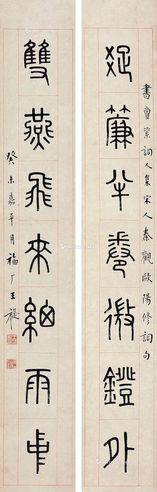 書詞人集宋人秦觀歐陽修詞句
疏簾半卷微鐙外
雙燕飛来細雨中
癸未嘉平月福厂王禔